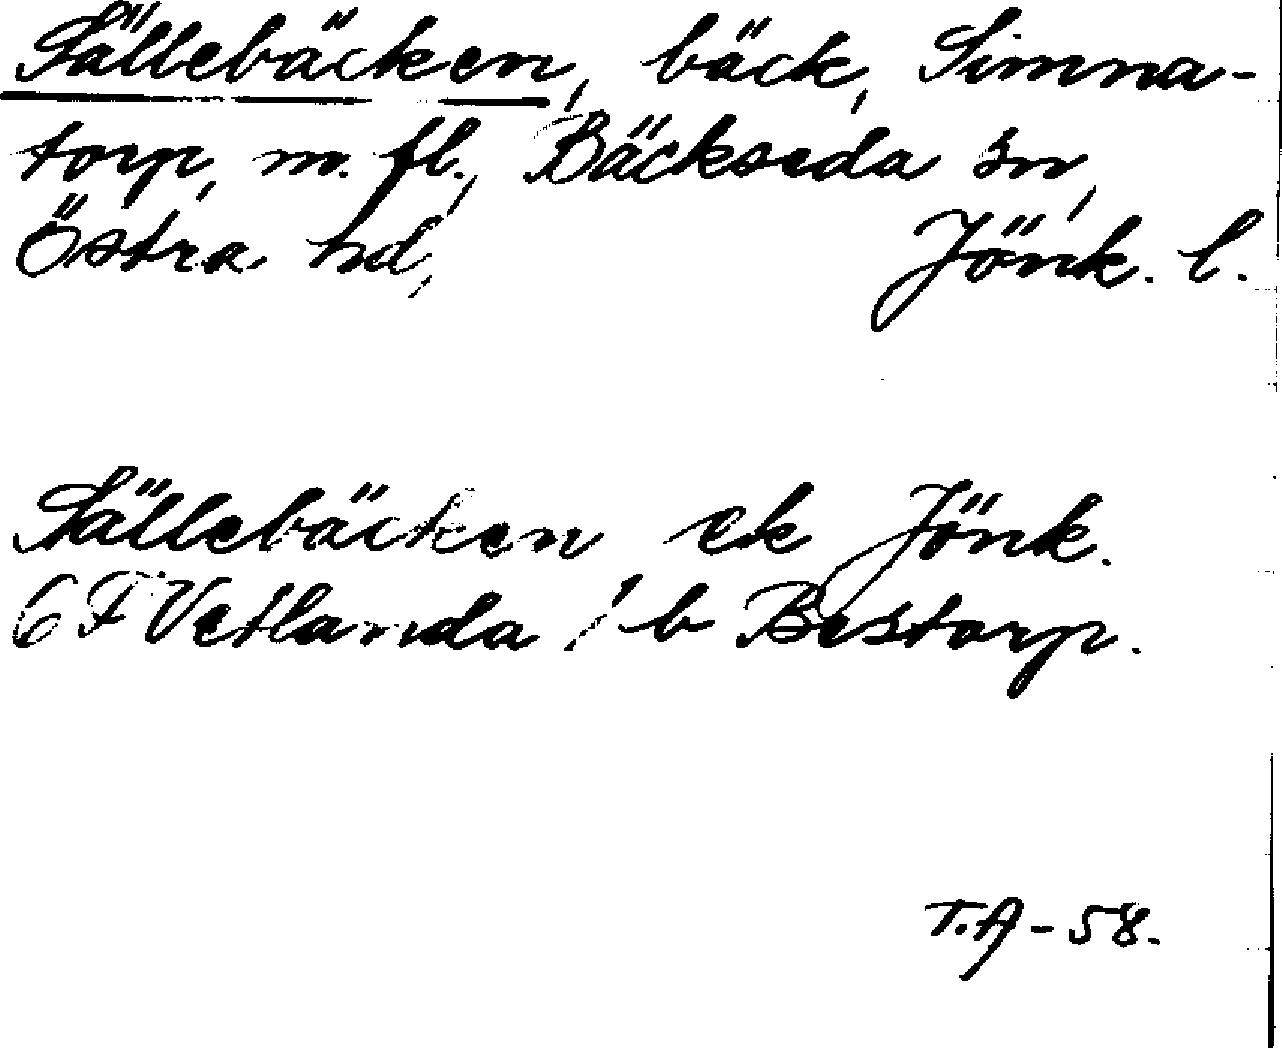 Sällebäcken, bäck, Simna-
torp, m. fl., Bäckseda sn,
Östra hd, Jönk. l.
Sällebäcken ek Jönk.
6 F Vetlanda 1 b Bestorp.
T.A - 58.